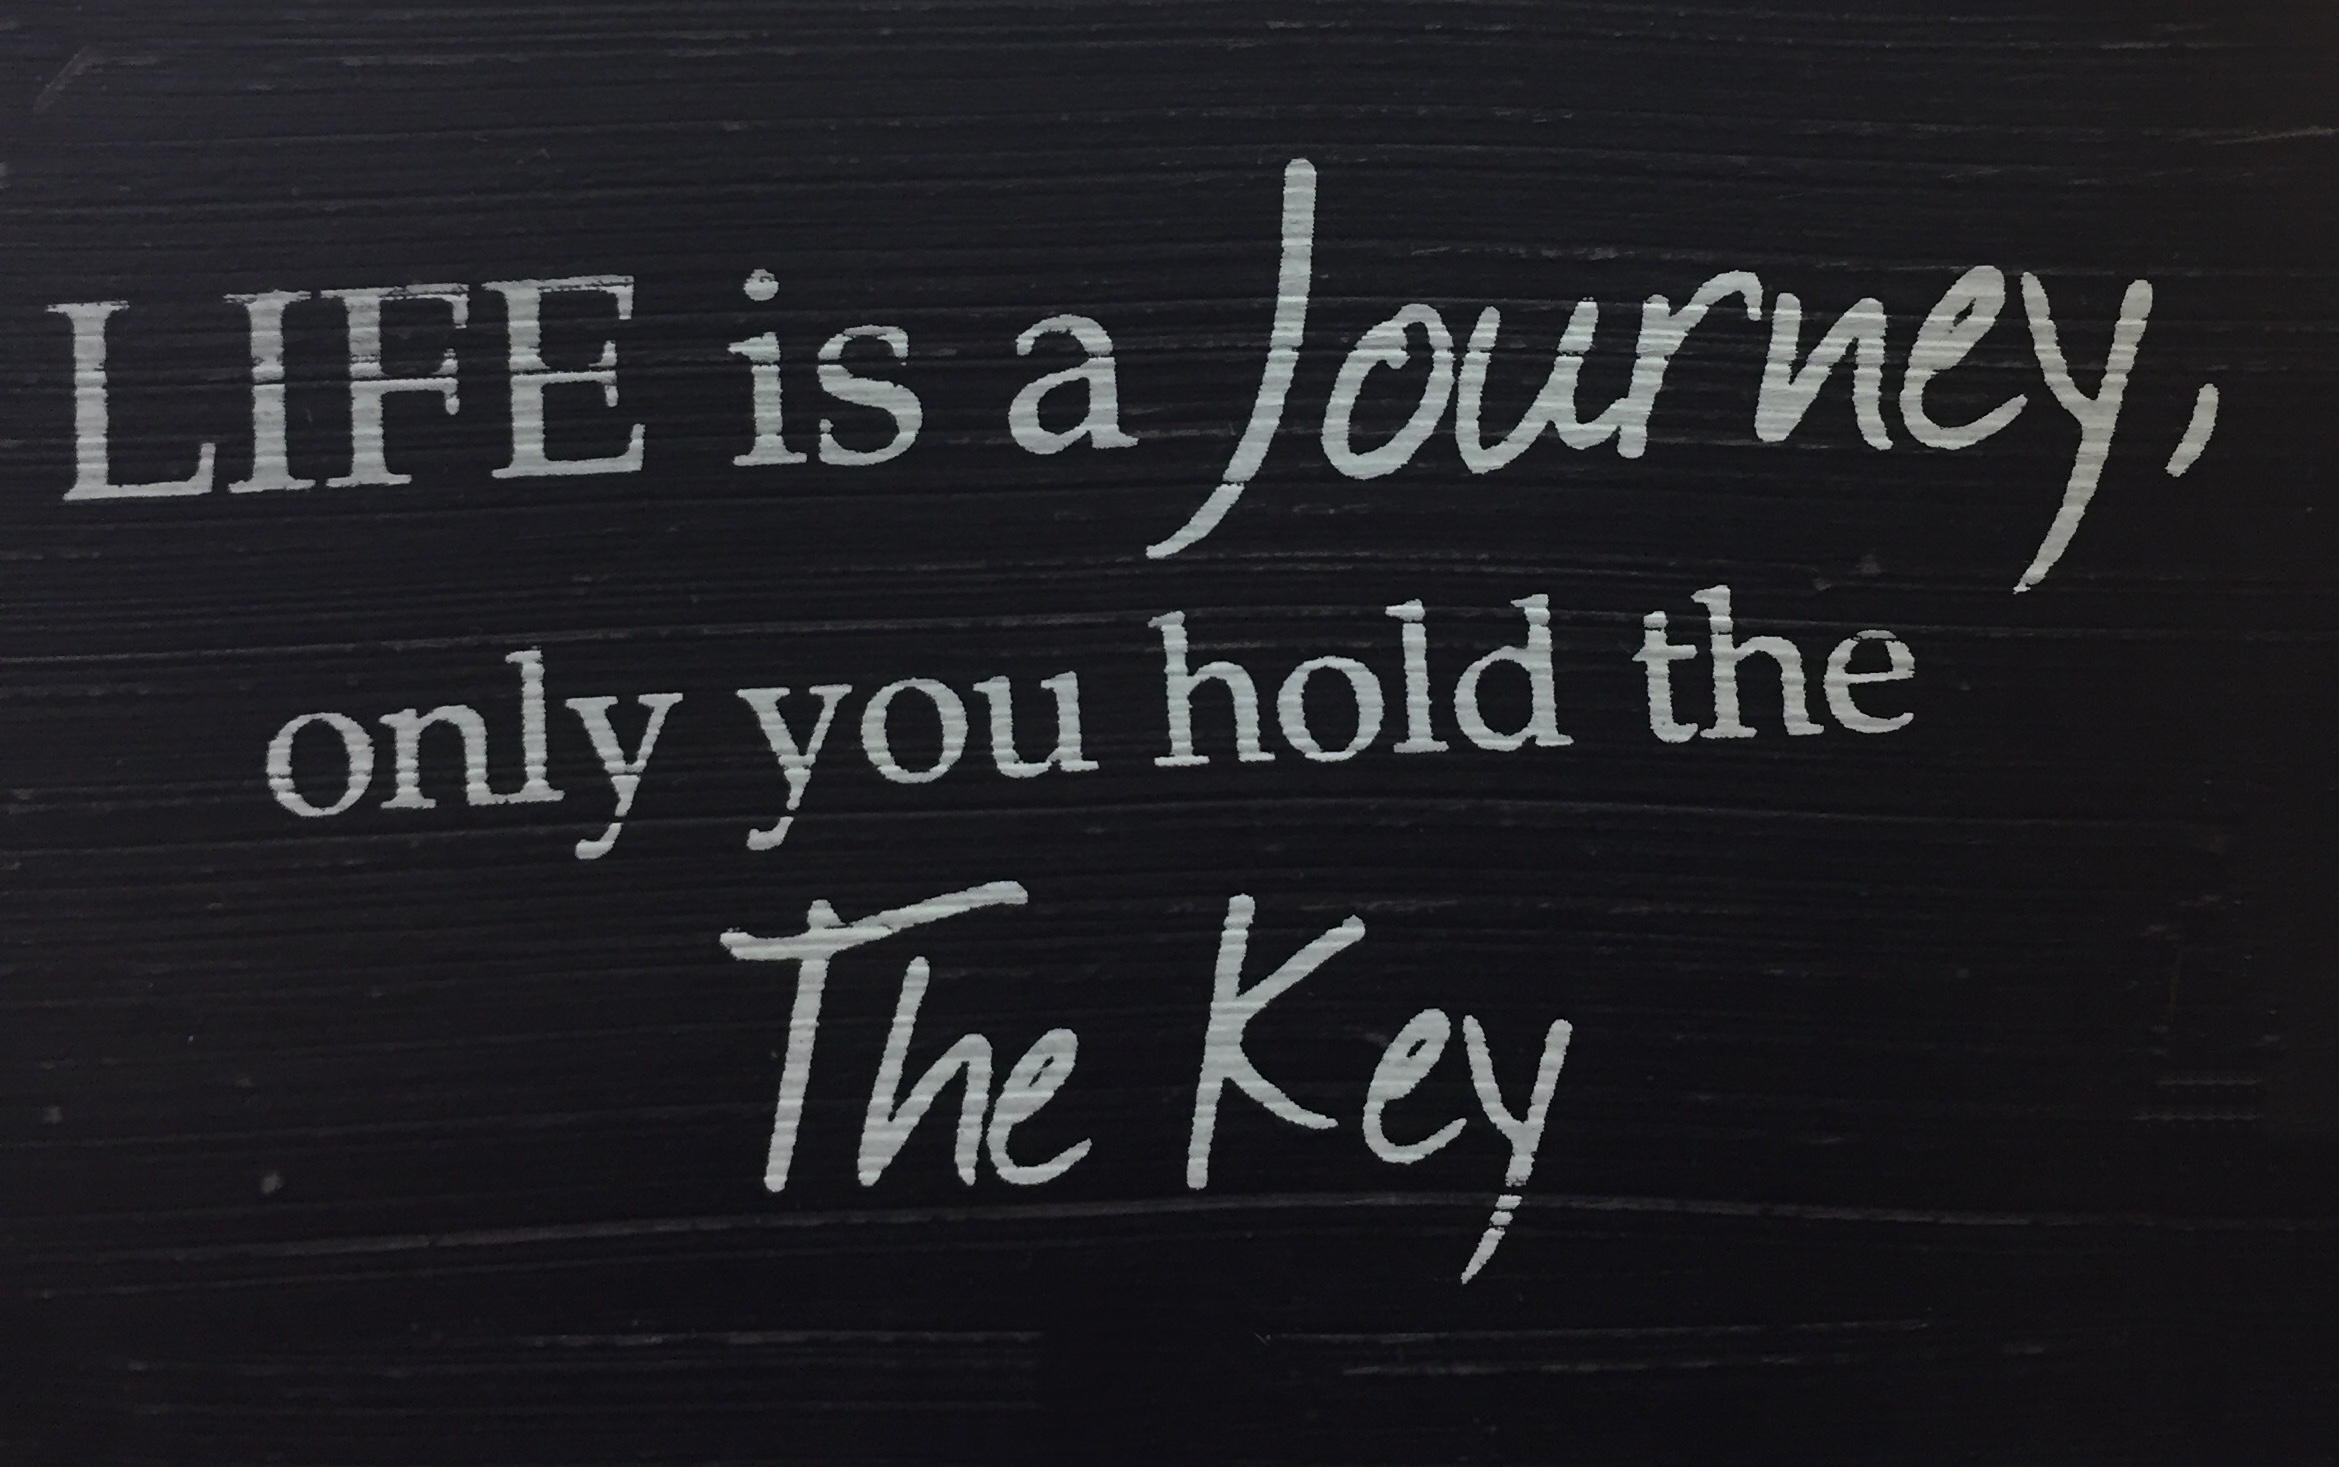 LIFE is a Journey,
only you hold the
The Key